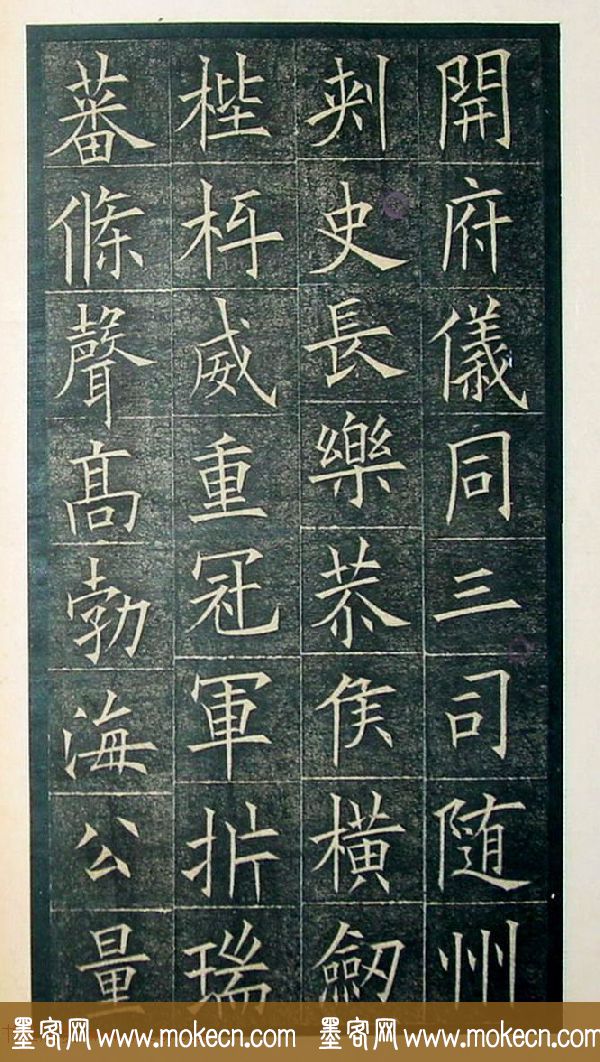 開府儀同三司随州
刾史長樂恭侯橫劒
梐枑威重冠軍折瑞
蕃條聲髙勃海公量
墨客网 www.mokecn.com 墨客网 www.mokecn.com